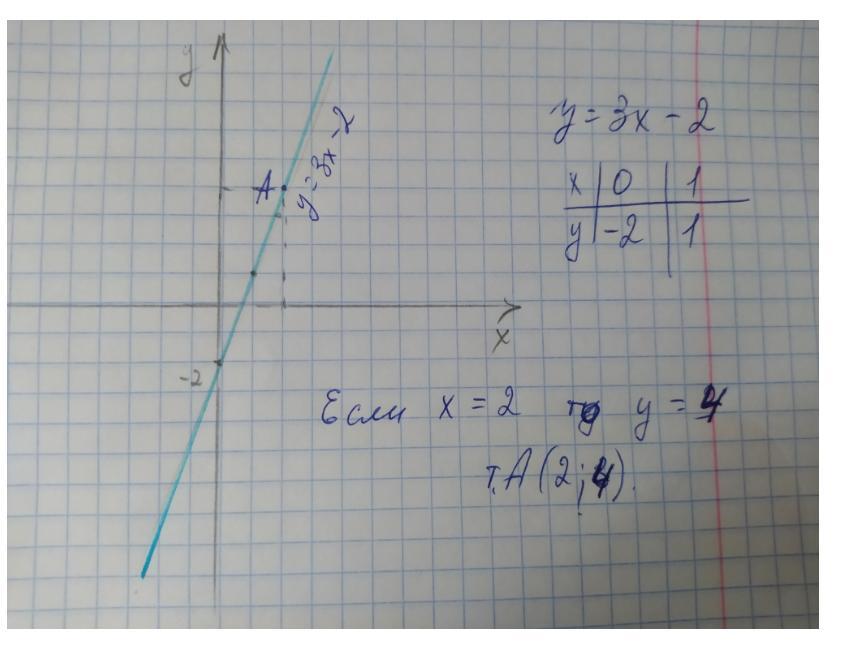 y
A
y = 3x - 2
-2
x
y = 3x - 2
x | 0 | 1
y | -2 | 1
Если x = 2 то y = 4
т. A (2; 4).